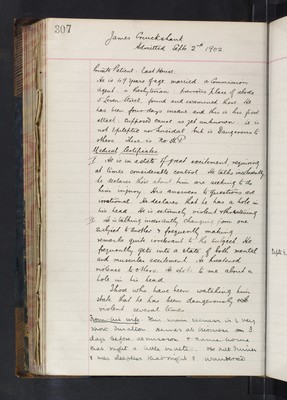 307
James Cruickshank
Admitted Septr 2nd 1902
Private Patient. East House.
He is 49 years of age married a Commission
agent a Presbyterian previous place of abode
Street found and examined here. He
has been four days insane and this is his first
attack. Supposed cause as yet unknown is is
not Epileptic nor Suicidal but is Dangerous to
others there is no
Medical Certificates
I He is in a state of great excitement requiring
at times considerable control. He talks incoherently
he declares those about him are seeking to do
him injury His answers to questions are
irrational He declares that he has a hole in
his head He is extremely violent & threatening
II He is talking incessantly changing from one
subject to another & frequently making
remarks quite irrelevant to the subject He
frequently gets into a state of both mental
and muscular excitement. He threatened
violence to others. He states to me about a
hole in his head
Those who have been watching him
state that he has been dangerously
violent several times
From his wife. This
more duration at business on 3
days before admission & came home
that night a little
& was sleepless that night & wandered
Septr